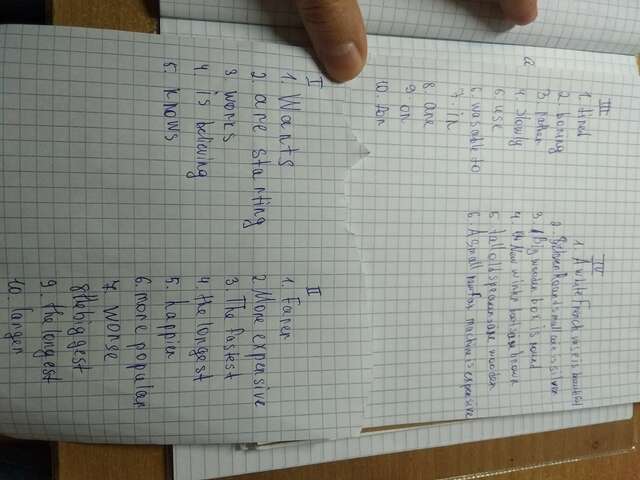 I
1. Wants
2 are starting
3. works
4. is believing
5. knows
II
1. Faner
2 More expensive
3 The fastest
4. the longest
5. happier
6. more popular
7. worse
8 the biggest
9. the longest
10. larger
III
1. tired
2 boring
3. rather
4. slowly
6 use
6 was able to
7. in
8 are
9 on
10. for
IV
1. A white French vase is beautiful
2. round small is silver
3. Big wooden box is round
4. brown
5 tall old are wooden
6. A small machine is expensive
a